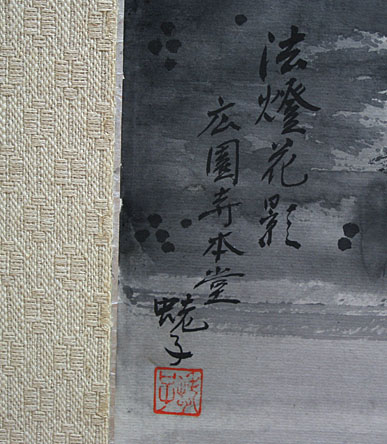 法燈花影
広園寺本堂